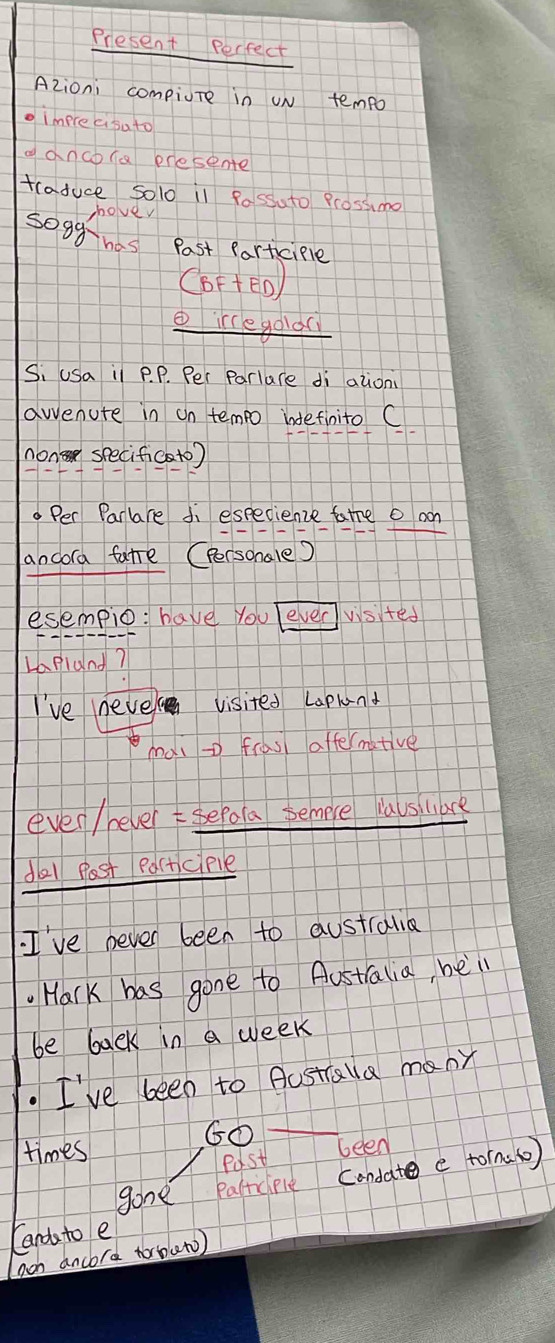 Present Perfect
Azioni compiute in un tempo
• imprecisato
• ancora presente
traduce solo il Passato Prossimo
have
sogg has Past Participle
(BF+ED)
⊕ irregolari
Si usa il P.P. Per Parlare di azioni
avvenute in un tempo indefinito (
non specificato)
• Per Parlare di esperienze fatte o non
ancora fatte (Personale)
esempio: have you ever visited
Lapland?
I've never visited Lapland
mai → frasi affermative
ever/never = separa sempre l'ausiliare
dal Past Participle
• I've never been to australia
• Mark has gone to Australia, he'll
be back in a week
• I've been to Australia many
times
GO
Past Participle
been
(andato e tornato)
gone
(andato e
non ancora tornato)